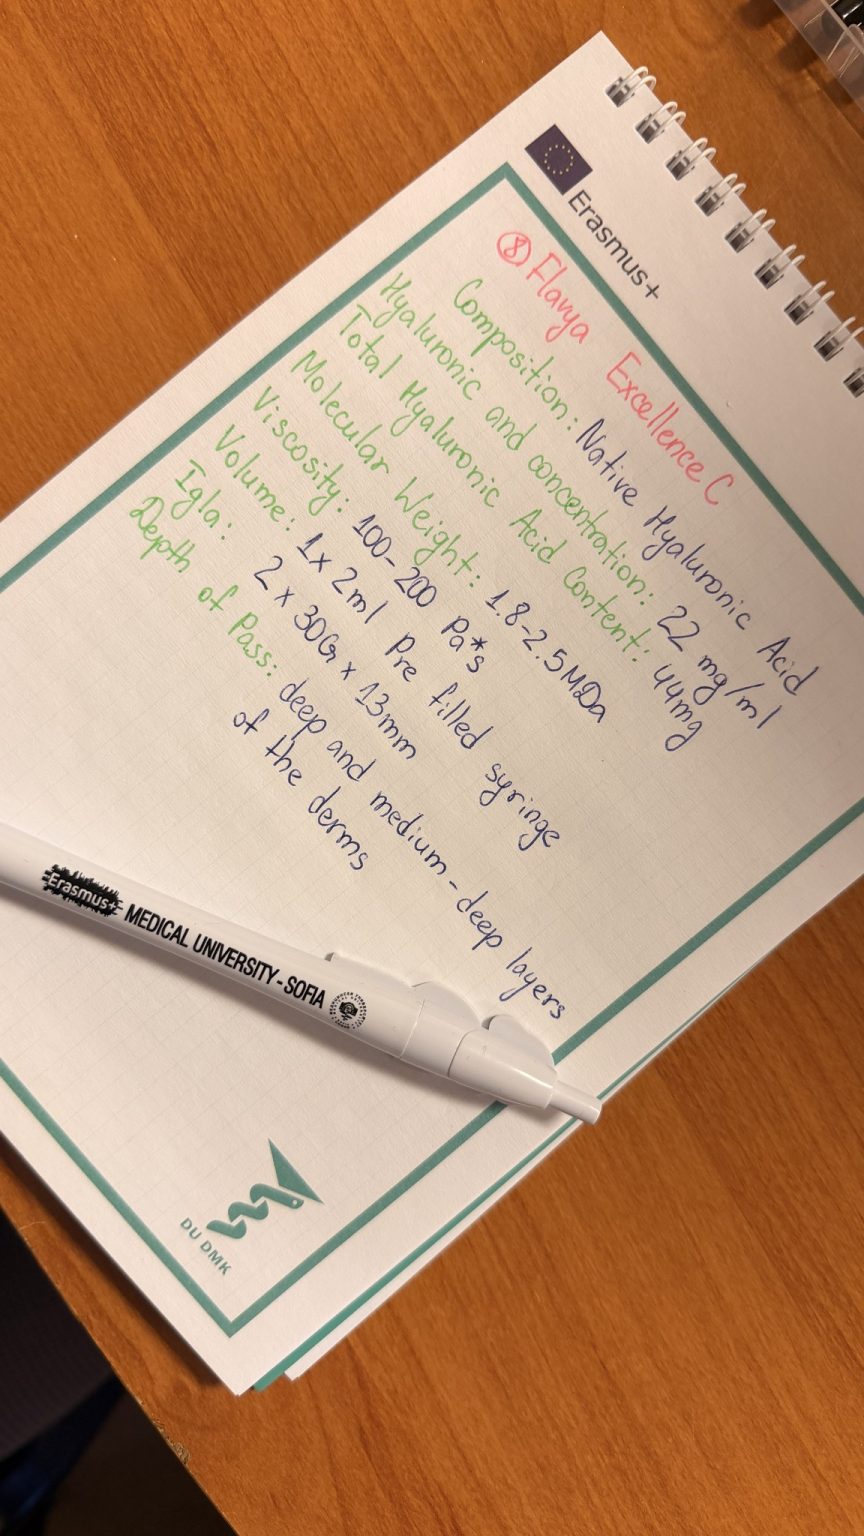 Erasmus+
⑧ Flavya Excellence C
Composition: Native Hyaluronic Acid
Hyaluronic and concentration: 22 mg/ml
Total Hyaluronic Acid Content: 44mg
Molecular Weight: 1.8-2.5MDa
Viscosity: 100-200 Pa*s
Volume: 1x2ml Pre filled syringe
Igla: 2 x 30G x 13mm
Depth of Pass: deep and medium-deep layers
of the derms
Erasmus+ MEDICAL UNIVERSITY - SOFIA
DU DMK